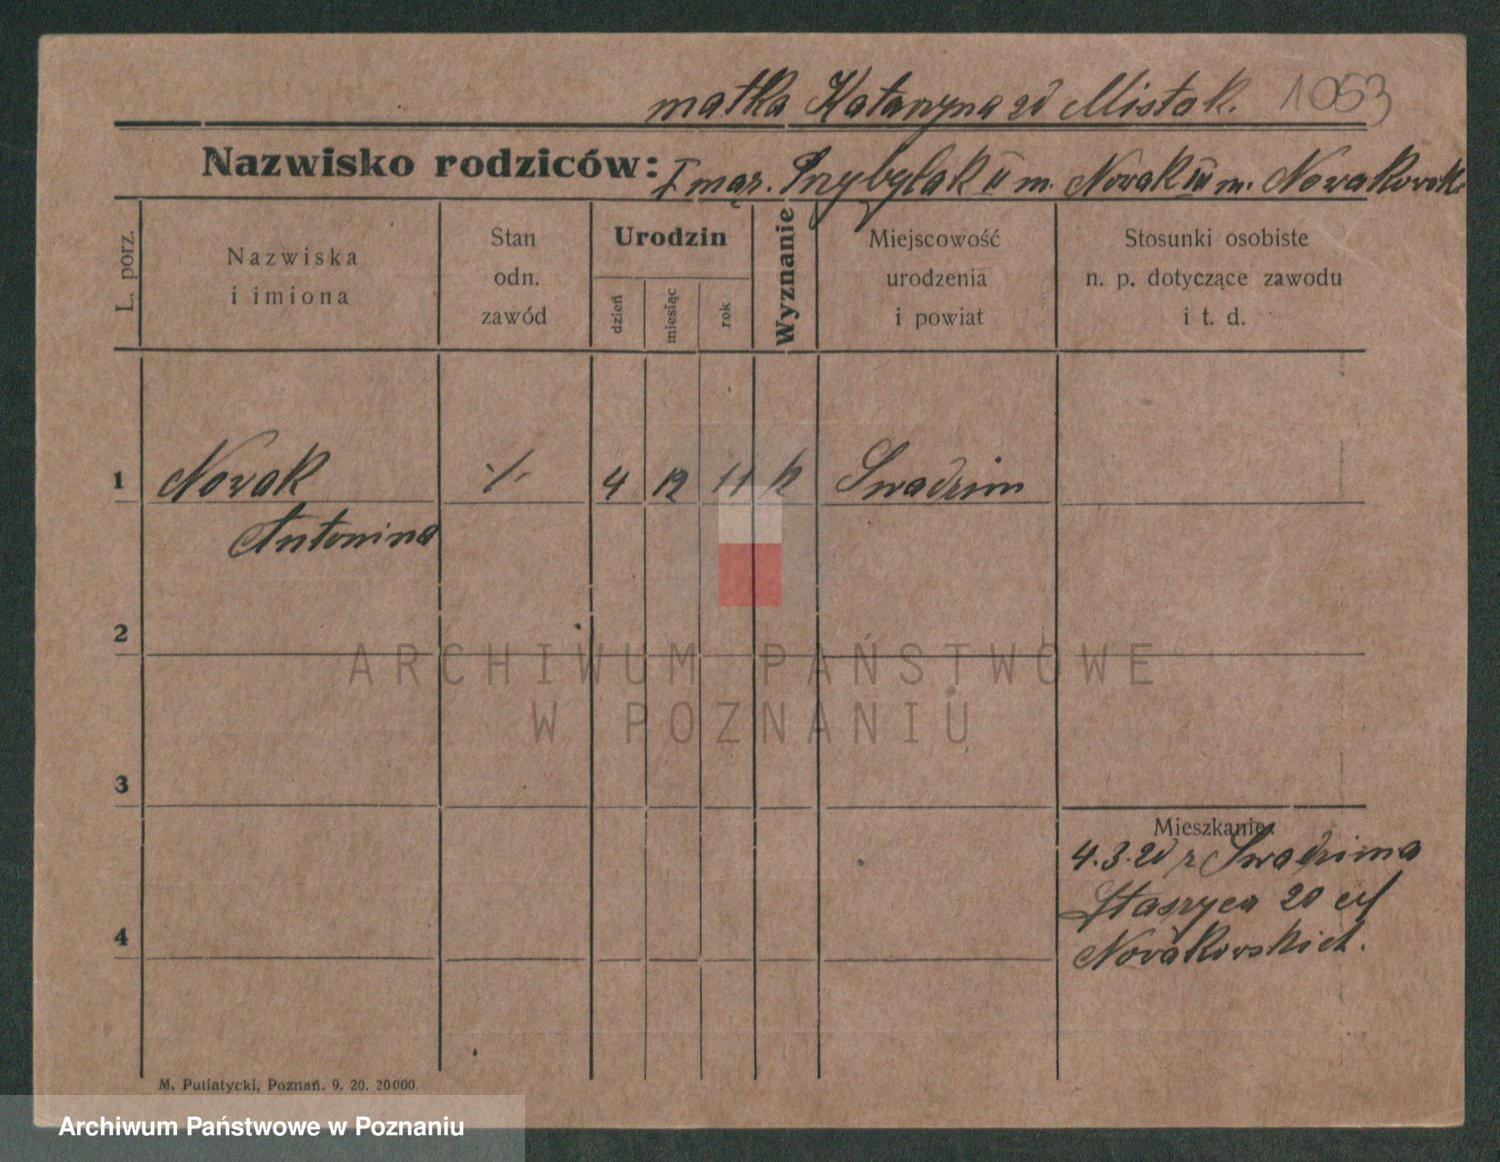 matka Katarzyna zd Mistak. 1053
Nazwisko rodziców: I mąż. Przybylak II m. Nowak III m. Nowakowski
L. porz.
Nazwiska
i imiona
Stan
odn.
zawód
Urodzin
dzień
miesiąc
rok
Wyznanie
Miejscowość
urodzenia
i powiat
Stosunki osobiste
n. p. dotyczące zawodu
i t. d.
1 Nowak -/- 4 12 11 k Swadzim
Antonina
2
ARCHIWUM PAŃSTWOWE
W POZNANIU
3
Mieszkanie:
4.3.20 z Swadzima
Staszyca 20
4
Nowakowskich.
M. Putiatycki, Poznań. 9. 20. 20000.
Archiwum Państwowe w Poznaniu